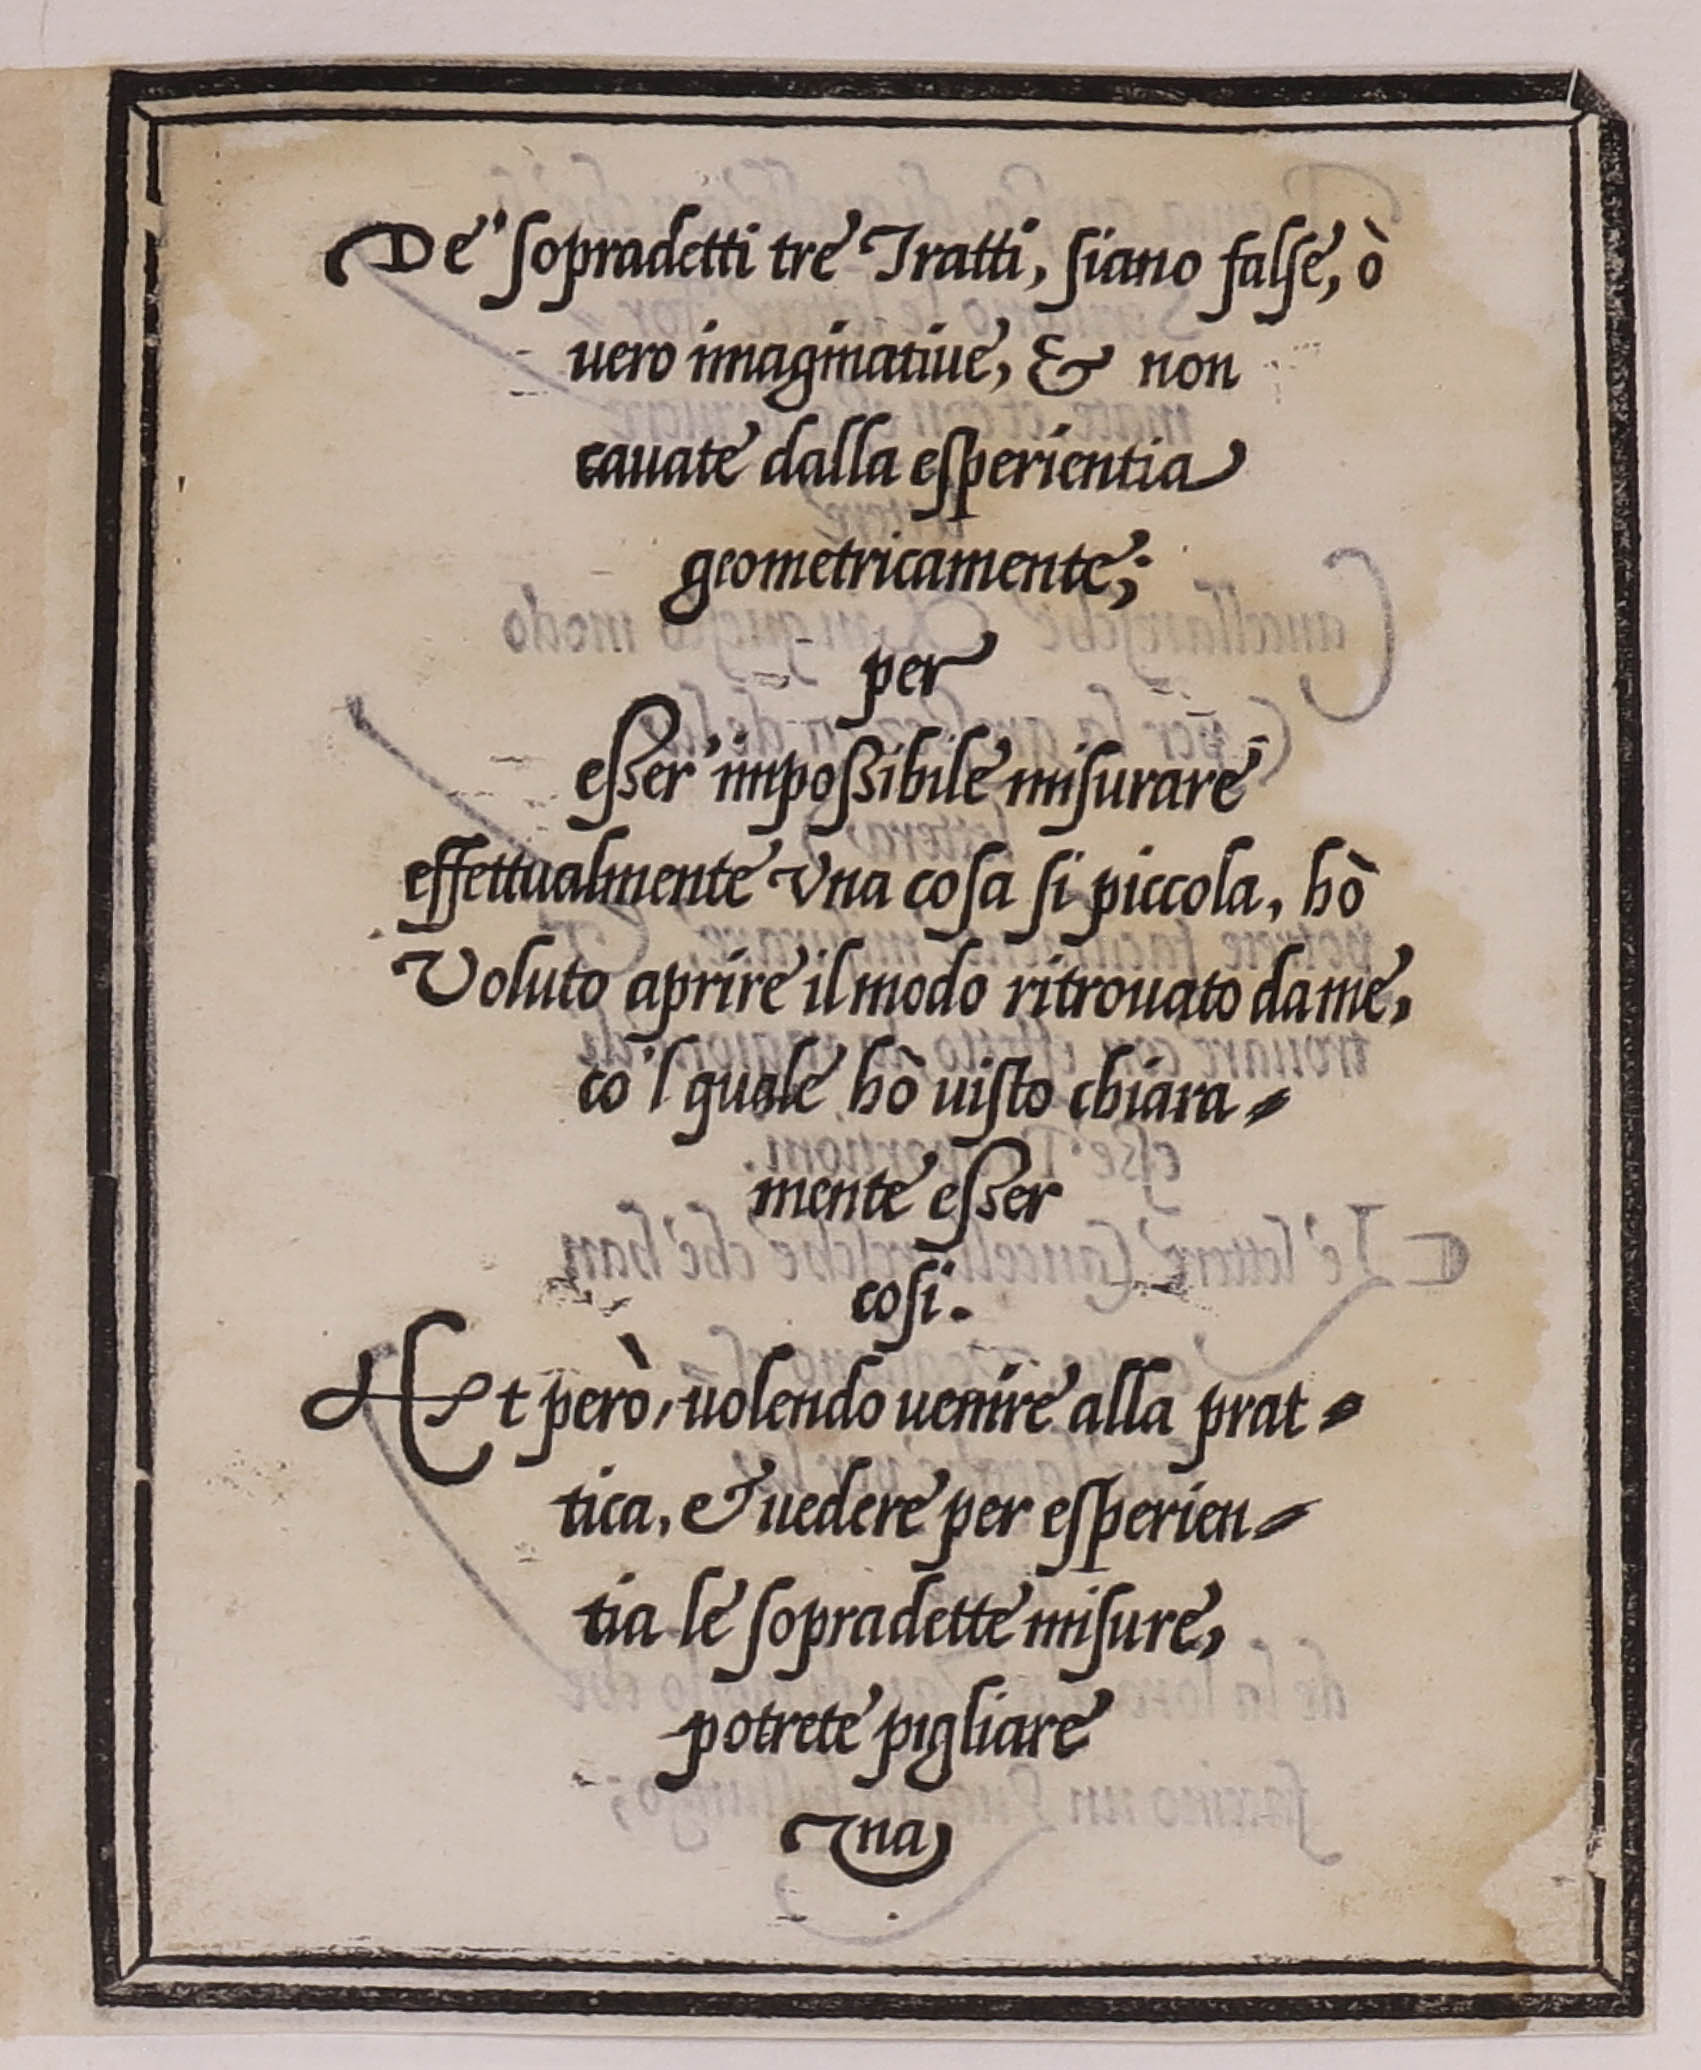 De' sopradetti tre Tratti, siano false, ò
uero imaginatiue, & non
cauate dalla esperientia
geometricamente;
per
esser' impossibile misurare
effettualmente vna cosa si piccola, hò
Voluto aprire il modo ritrouato da me,
co 'l quale hò uisto chiara-
mente esser
cosi.
Et però, uolendo uenire alla prat-
tica, et uedere per esperien-
tia le sopradette misure,
potrete pigliare
vna